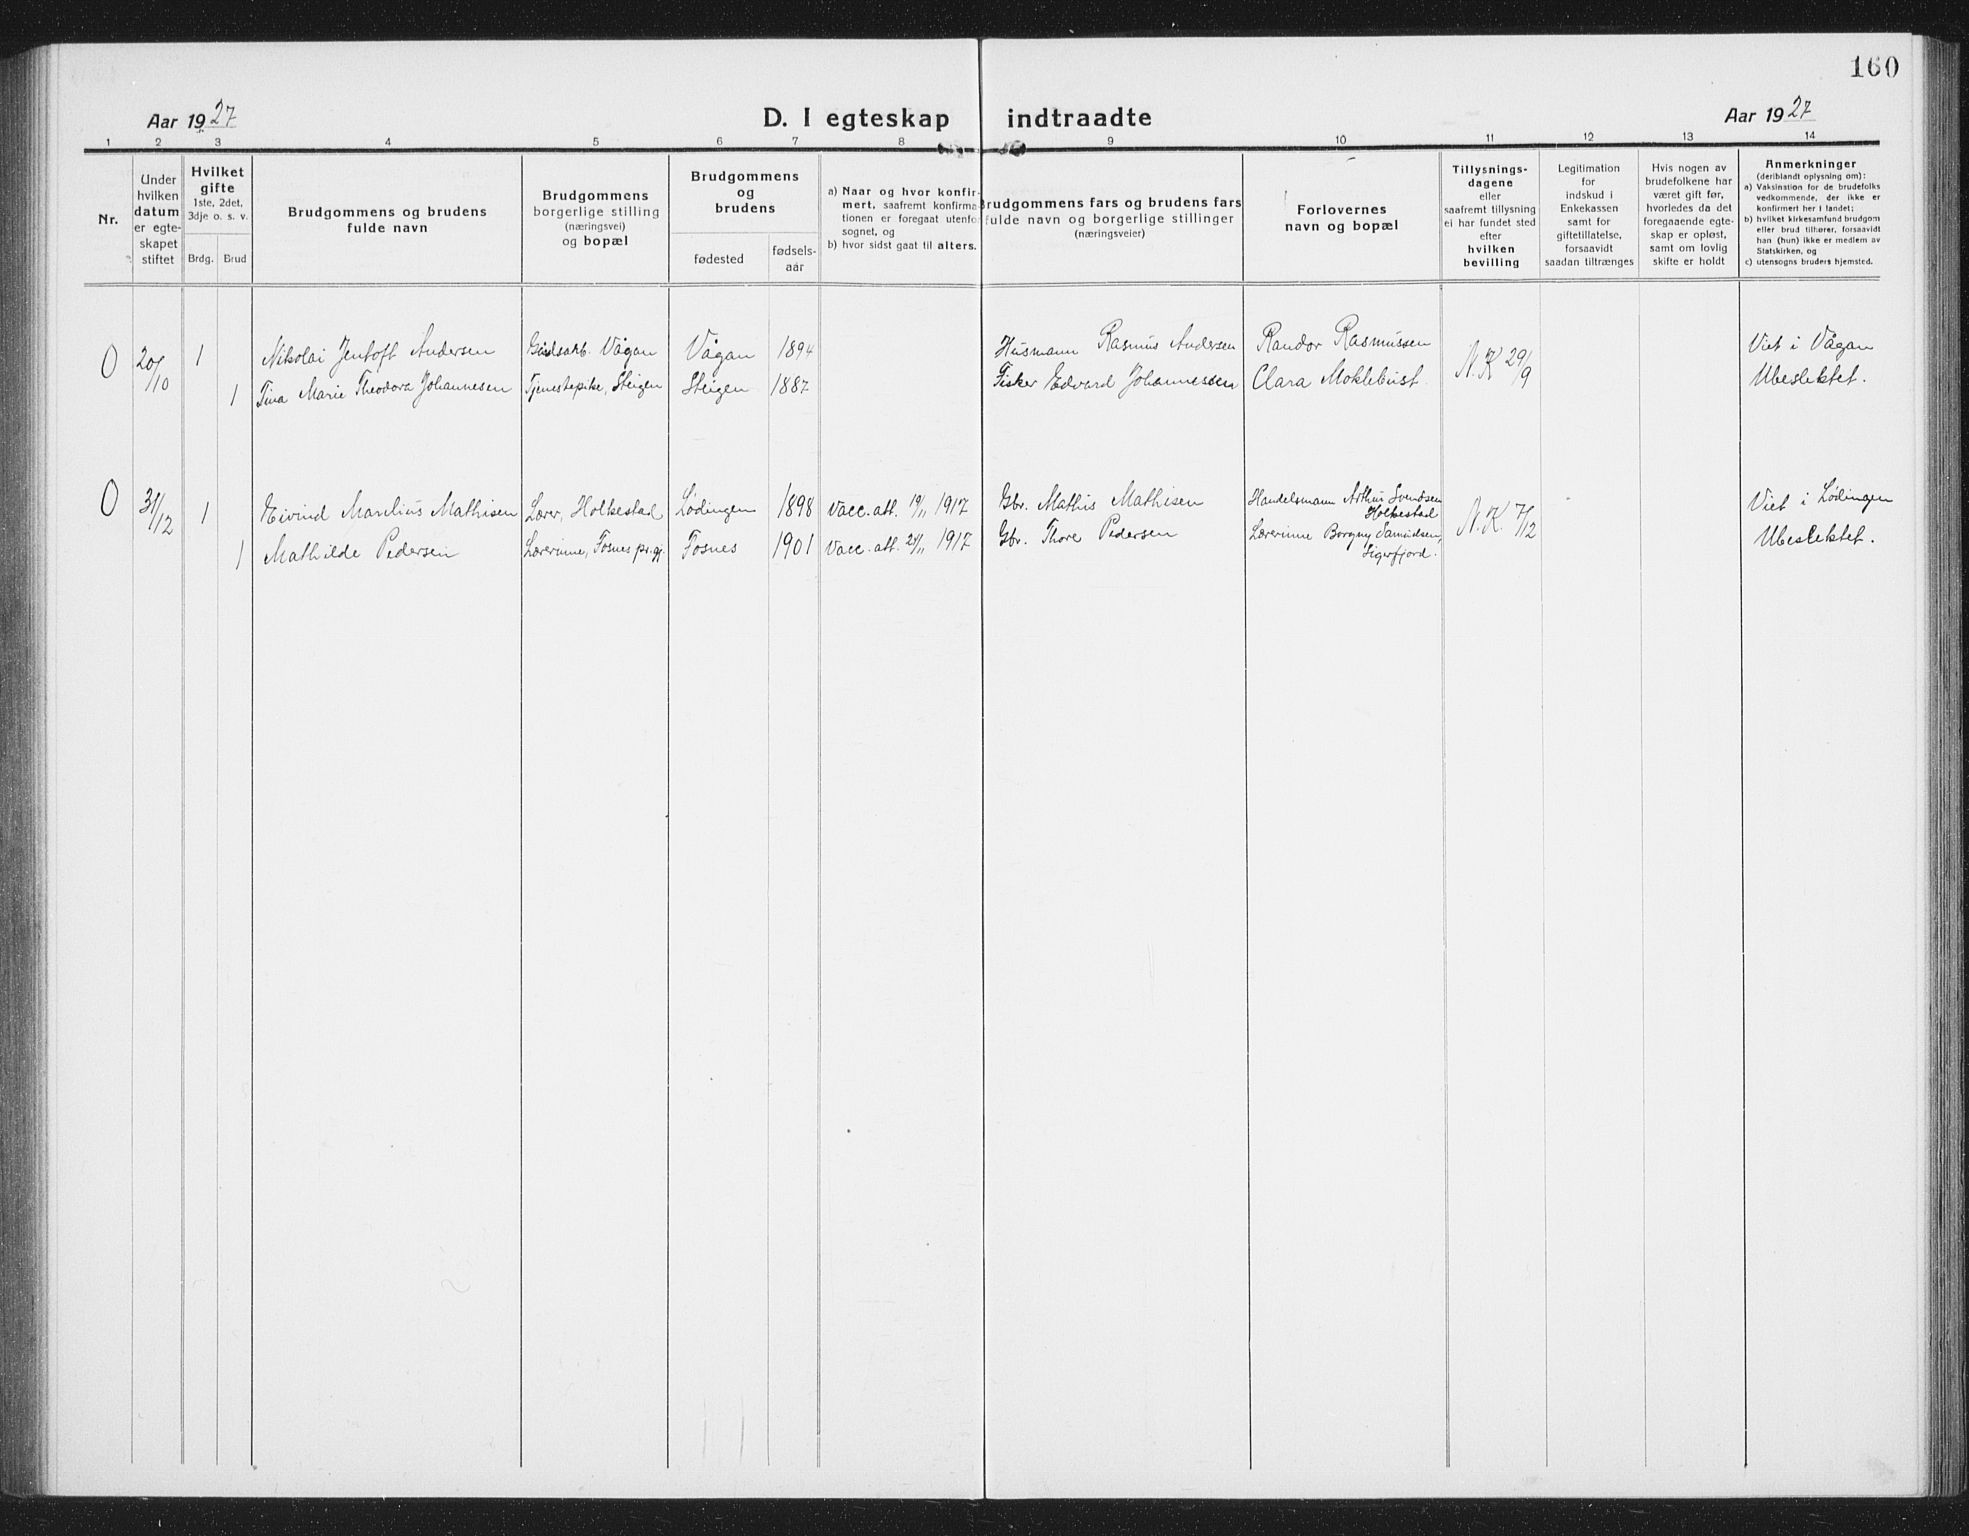 160
Aar 1927
D. I egteskap indtraadte
Aar 1927
1 2 3 4 5 6 7 8 9 10 11 12 13 14
Nr.
Under
hvilken
datum
er egte-
skapet
stiftet
Hvilket
gifte
1ste, 2det,
3dje o. s. v.
Brdg. Brud
Brudgommens og brudens
fulde navn
Brudgommens
borgerlige stilling
(næringsvei)
og bopæl
Brudgommens
og
brudens
fødested
fødsels-
aar
a) Naar og hvor konfir-
mert, saafremt konfirma-
tionen er foregaat utenfor
sognet, og
b) hvor sidst gaat til alters.
Brudgommens fars og brudens fars
fulde navn og borgerlige stillinger
(næringsveier)
Forlovernes
navn og bopæl
Tillysnings-
dagene
eller
saafremt tillysning
ei har fundet sted
efter
hvilken
bevilling
Legitimation
for
indskud i
Enkekassen
samt for
giftetillatelse,
forsaavidt
saadan tiltrænges
Hvis nogen av
brudefolkene har
været gift før,
hvorledes da det
foregaaende egte-
skap er opløst,
samt om lovlig
skifte er holdt
Anmerkninger
(deriblandt oplysning om):
a) Vaksinstion for de brudefolks
vedkommende, der ikke er
konfirmert her i landet;
b) hvilket kirkesamfund brudgom
eller brud tilhører, forsaavidt
han (hun) ikke er medlem av
Statskirken, og
c) utensogns bruders hjemsted.
0 20/10 1 Nikolai Jentoft Andersen Gårdsarb. Vågan Vågan 1894 Husmann Rasmus Andersen Randor Rasmussen N.K 29/9 Viet i Vågan
1 Tina Marie Theodora Johannesen Tjenestepike, Steigen Steigen 1887 Fisker Edvard Johannessen Clara Moklebust. Ubeslektet.
0 31/12 1 Eivind Marelius Mathisen Lærer, Holkestad Lødingen 1898 Vacc. att. 19/11 1917 Gbr. Mathis Mathisen Handelsmann Arthur Svendsen Holkestad N.K. 7/2 Viet i Lødingen
1 Mathilde Pedersen Lærerinne, Fosnes pr.gj. Fosnes 1901 Vacc. att. 21/11 1917 Gbr. Thore Pedersen Lærerinne Borgny Samuelsen, Sigerfjord. Ubeslektet.